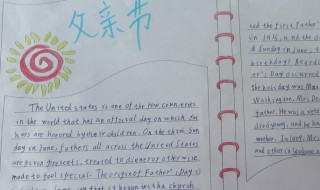 父亲节
The United States is one of the few countries
in the world that has an official day on which fa
hers are honored by their children. On the third Sun
day in June, fathers all across the United States
are given presents, treated to dinner or otherwise
made to feel special. The origin of Father's Day is
that it began with a church
ed the first Father'
in
d Sunday in June, t
birthday! Regard
er's Day occurred
the holiday was Mrs
Washington. Mrs. Do
father. He was a vete
died young, and he ha
mother.
and other in